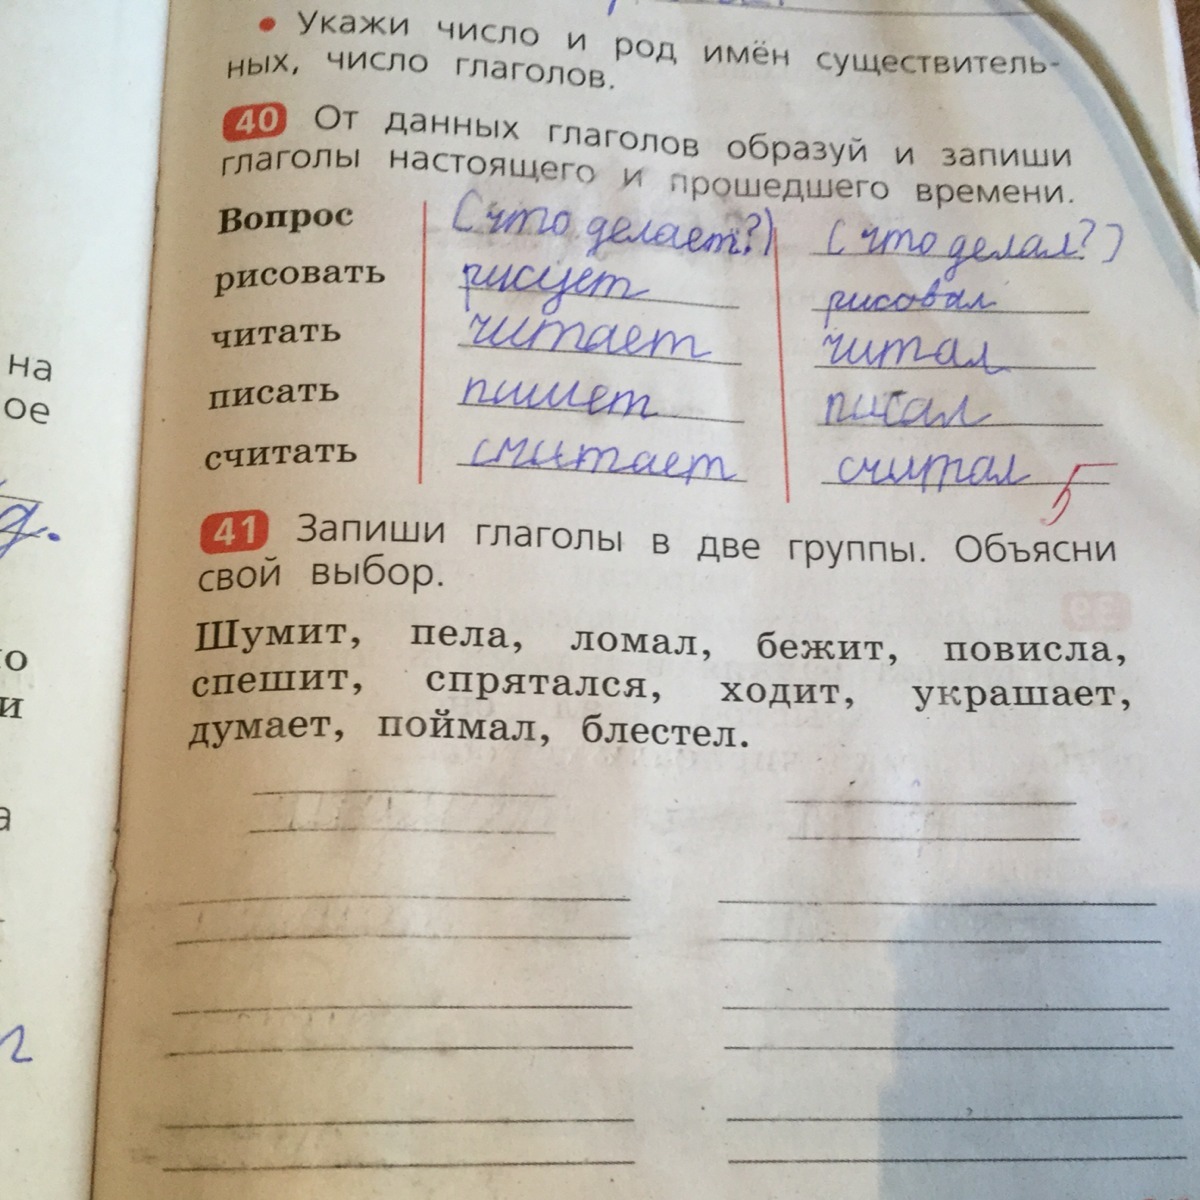 • Укажи число и род имён существитель-
ных, число глаголов.
40 От данных глаголов образуй и запиши
глаголы настоящего и прошедшего времени.
Вопрос (что делает?) (что делал?)
рисовать рисует рисовал
читать читает читал
писать пишет писал
считать считает считал 5
41 Запиши глаголы в две группы. Объясни
свой выбор.
Шумит, пела, ломал, бежит, повисла,
спешит, спрятался, ходит, украшает,
думает, поймал, блестел.
на
ое
и
а